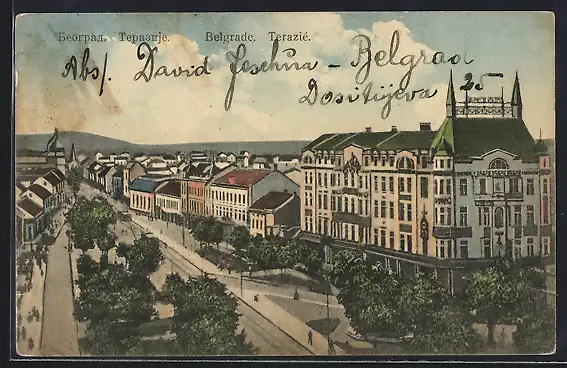 Београд. Теразије. Belgrade. Terazié.
Abs. David Jeschua - Belgrad
Dositijeva 25